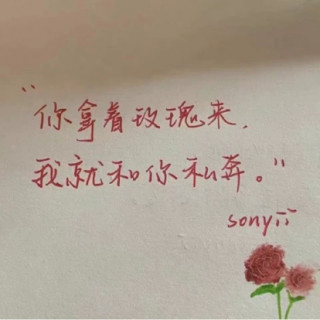 “你拿着玫瑰来，
我就和你私奔。”
sonyii